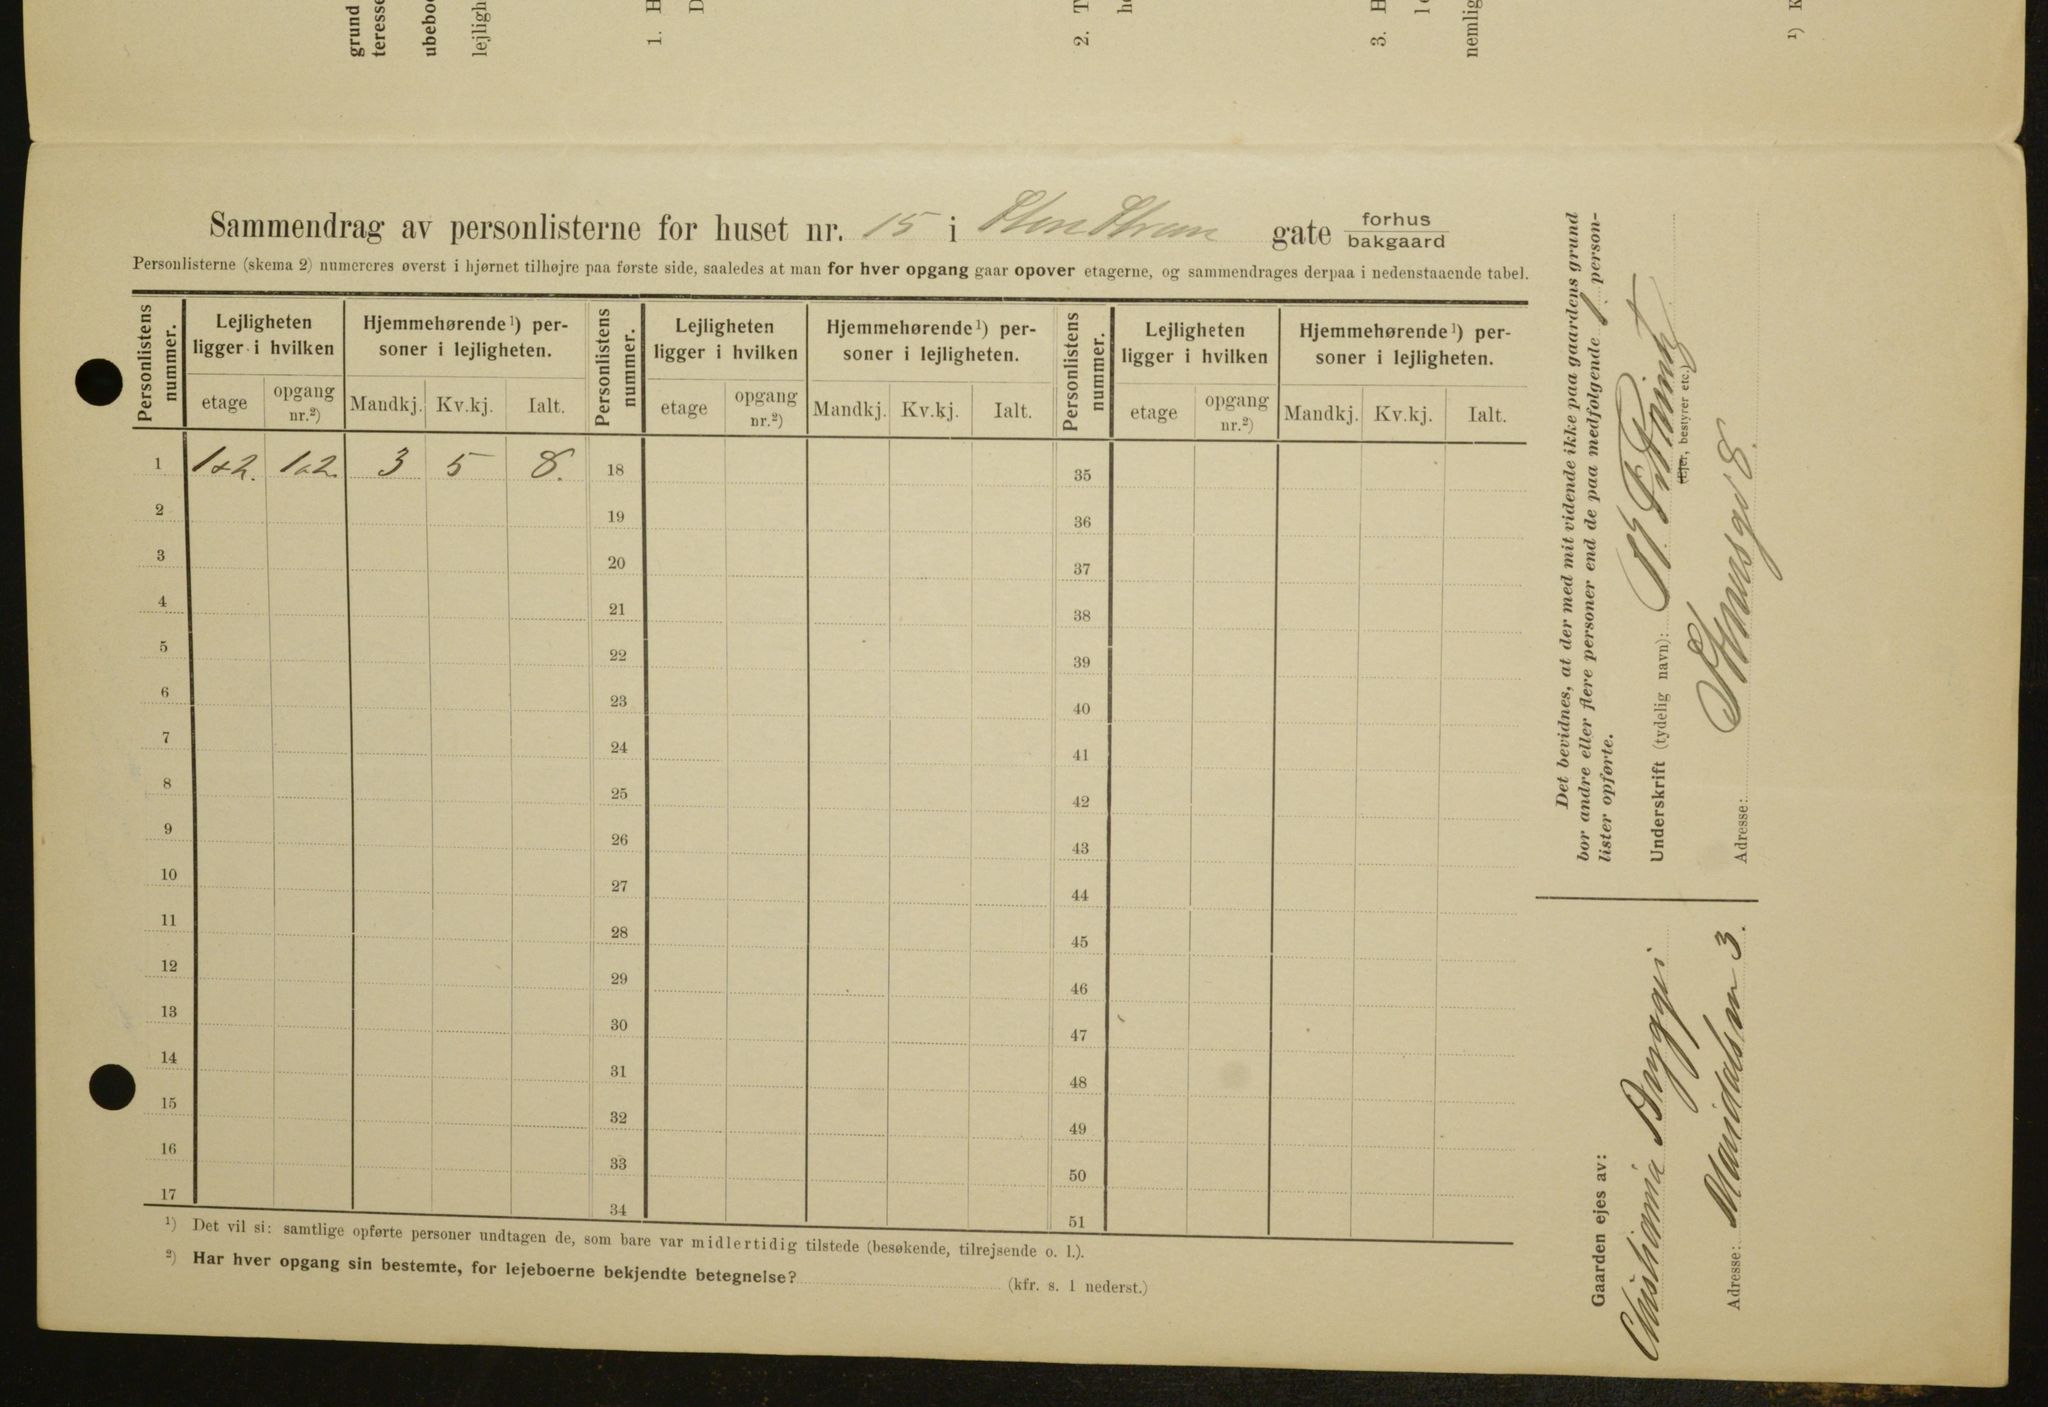 grund
teresse
ubeboe
lejligh
1. H
D
2. T
he
3. H
le
nemlig
¹) K
Sammendrag av personlisterne for huset nr. 15 i Sten Strem gate forhus
bakgaard
Personlisterne (skema 2) numereres øverst i hjørnet tilhøjre paa første side, saaledes at man for hver opgang gaar opover etagerne, og sammendrages derpaa i nedenstaaende tabel.
Personlistens nummer. Lejligheten ligger i hvilken Hjemmehørende¹) personer i lejligheten. Personlistens nummer. Lejligheten ligger i hvilken Hjemmehørende¹) personer i lejligheten. Personlistens nummer. Lejligheten ligger i hvilken Hjemmehørende¹) personer i lejligheten.
etage opgang nr.²) Mandkj. Kv.kj. Ialt. etage opgang nr.²) Mandkj. Kv.kj. Ialt. etage opgang nr.²) Mandkj. Kv.kj. Ialt.
1 1&2. 1&2. 3 5 8. 18 35
2 19 36
3 20 37
4 21 38
5 22 39
6 23 40
7 24 41
8 25 42
9 26 43
10 27 44
11 28 45
12 29 46
13 30 47
14 31 48
15 32 49
16 33 50
17 34 51
¹) Det vil si: samtlige opførte personer undtagen de, som bare var midlertidig tilstede (besøkende, tilrejsende o. l.).
²) Har hver opgang sin bestemte, for lejeboerne bekjendte betegnelse? (kfr. s. 1 nederst.)
Det bevidnes, at der med mit vidende ikke paa gaardens grund
bor andre eller flere personer end de paa medfølgende 1 person-
lister opførte.
Underskrift (tydelig navn):
(Ejer, bestyrer etc.)
Adresse: 8.
Gaarden ejes av:
Christiania Byggi
Adresse: Maridalsvn 3.